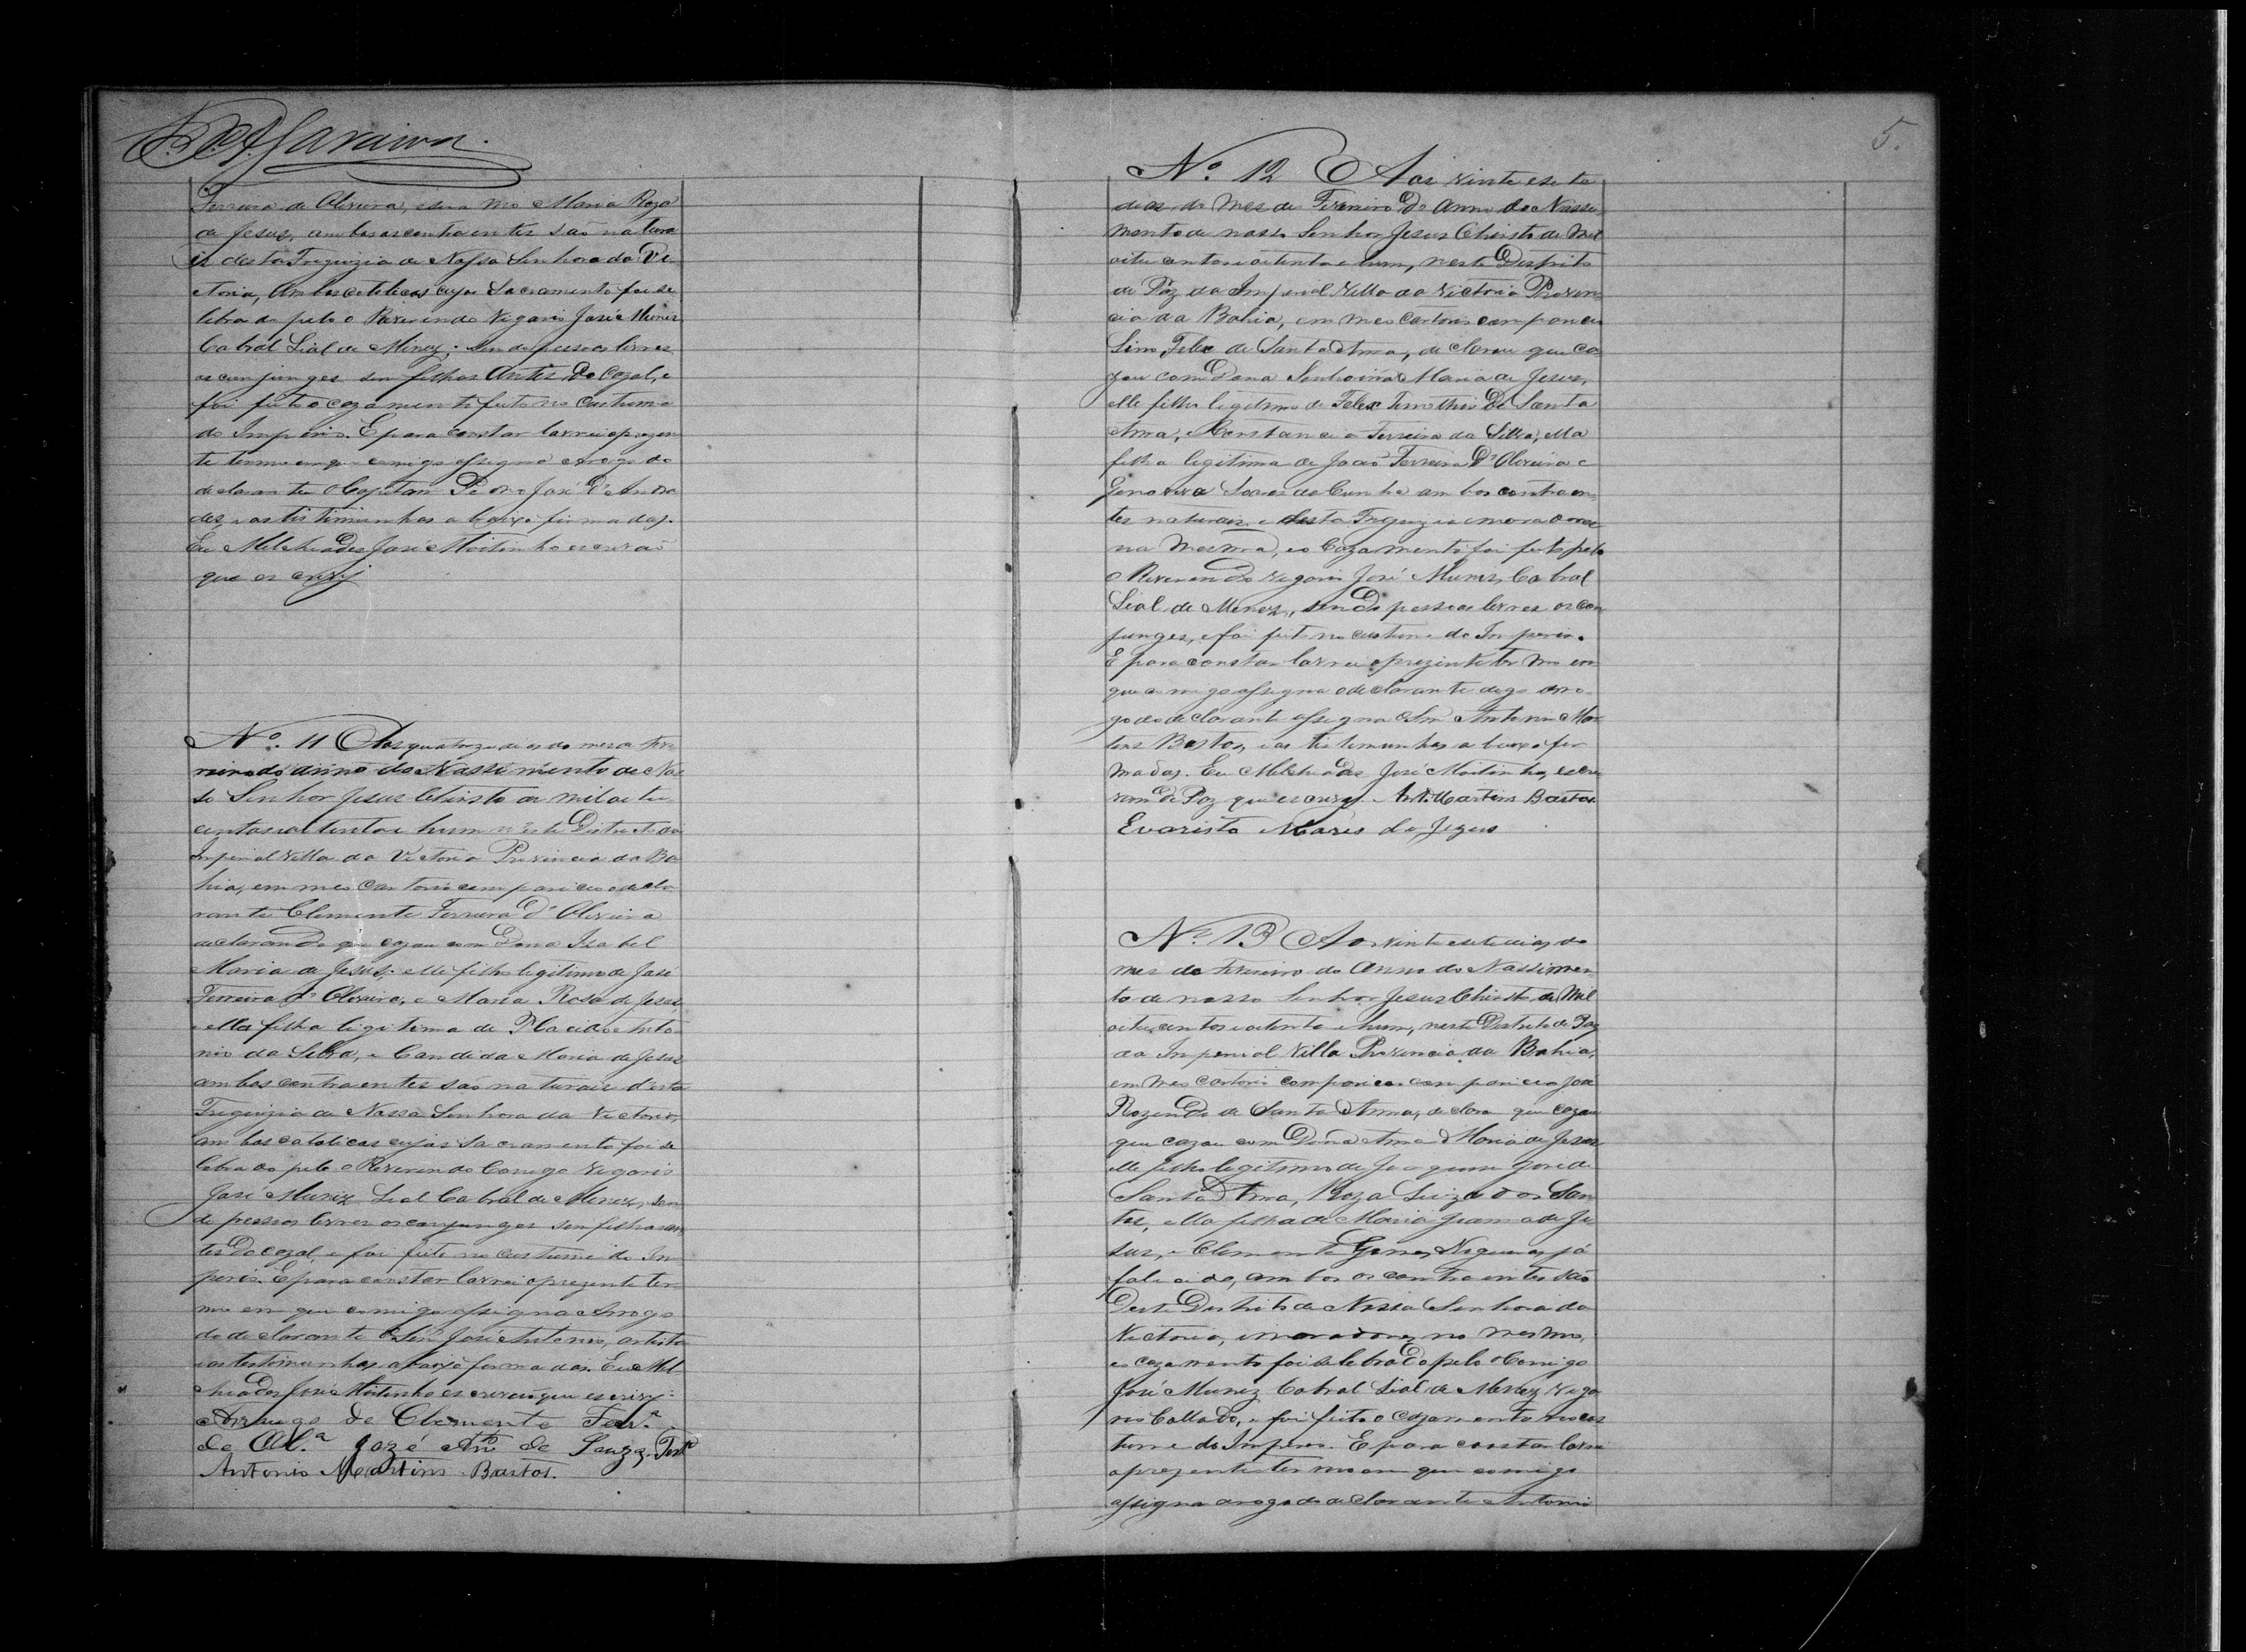 Ferreira de Oliveira, e sua Mo Maria Roza
de Jesus, ambos os contraentes são natura
is desta Freguizia de Nossa Senhora da Vi
ctoria, Ambos catolicos cujo Sacramento foi se
lebrado pelo o Reverendo Vigario José Munis
Cabral Lial de Minez; sendo pessoas livres
os conjunges sem filhos Antes Do Cazal, e
foi feito o cazamento feito no custume
do Imperio. E para constar lavrei o prezen
te termo em que comigo assigna arogo do
declarante o Capitam Pedro José D'Andra
des, e as tistimunhas abaixo firmadas.
Eu Melchiades José Moitinho escrivão
que es crivy
Nº. 11 Aos quatorze dias do mes de Feve
reiro do anno do Nassimento de Nos
so Senhor Jesus Christo de mil oitu
centos e oitenta e hum n'este Districto da
Imperial Villa da Victoria Provincia da Ba
hia, em meo Cartorio compariceo o decla
rante Clemente Ferreira D' Oliveira
declarando que cazou com Dona Izabel
Maria de Jesus; elle filho legitimo de José
Ferreira d' Oliveira, e Maria Rosa de Jesus,
e ella filha legitima de Placido Anto
nio da Silva, e Candida Maria de Jesus
ambos contraentes são naturais desta
Freguizia de Nossa Senhora da Victoria,
ambos catolicos cujos sacramento foi se
lebrado pelo o Reverendo Conigo Vigario
José Muniz Leal Cabral de Menez, sen
do pessoas livres os conjunges sem filhos an
tes Do cazal, e foi feito no custume do Im
perio. E para constar lavrei o prezente ter
mo em que comigo assigna Arrogo
do declarante o Snr José Antonio, artista
e as testimunhas abaixo firmadas. Eu Mel
chiades José Moitinho escrivão que escrivy.
Arrugo de Clemente Ferr.ª
de Ol.ª Jozé Antº de Souza
Antonio Martins Bastos.
5.
Nº. 12 Aos vinte e sete
dias do Mes de Fevereiro Do Anno do Nassi
mento de nosso Senhor Jesus Christo de Mil
oitu centos e oitenta e hum, neste Destrito
de Paz da Imperial Villa da Victoria Provin
cia da Bahia, em meo Cartorio compareceu
Felex de Santa Anna, declarou que ca
zou com Dona Senhorinha Maria de Jesus,
elle filho legitimo de Felex Timothio De Santa
Anna, e Constancia Ferreira da Silva, ella
filha legitima de João Ferreira D' Oliveira e
Genoveva Soares da Cunha ambos contraen
tes naturais e desta Freguizia e moradores
na Mesma, e o Cazamento foi feito pelo
o Reverendo Vigario José Munis, Cabral
Lial de Menez, sendo pessoas livres os con
junges, e foi feito no custume do Imperio.
E para constar lavrei o prezente ter mo em
que comigo assigna o declarante digo arro
go do declarante assigna o Snr Antonio Mar
tins Bastos, e as tistimunhas abaixo fir
madas. Eu Melchiades José Moitinho, escri
vam de Paz que escrivy. Ant. Martins Bastos
Evaristo Mares de Jezus
Nº. 13 Aos vinte e sete dias do
mes de Fevereiro do Anno do Nassimen
to de nosso Senhor Jesus Christo de Mil
oitu centos e oitenta e hum, neste Destrito de Paz
da Imperial Villa Provincia da Bahia,
em meo cartorio compariceo compariceo José
Rozendo de Santa Anna, declara que cazou
que cazou com Dona Anna Maria de Jesus
elle filho legitimo de Joaquim José de
Santa Anna, Roza Luiza dos San
tos, ella filha de Maria Joanna de Je
sus, e Clemente Nogueira, já
falicido, ambos os contraintes são
Deste Destrito de Nossa Senhora da
Victoria, e moradores no mesmo,
e o cazamento foi selebrado pelo o Conigo
José Muniz Cabral Lial de Menez viga
rio Collado, e foi feito o cazamento no cos
tume do Imperio. E para constar lavrei
o prezente ter mo em que comigo
assigna arogo do declarante Antonio